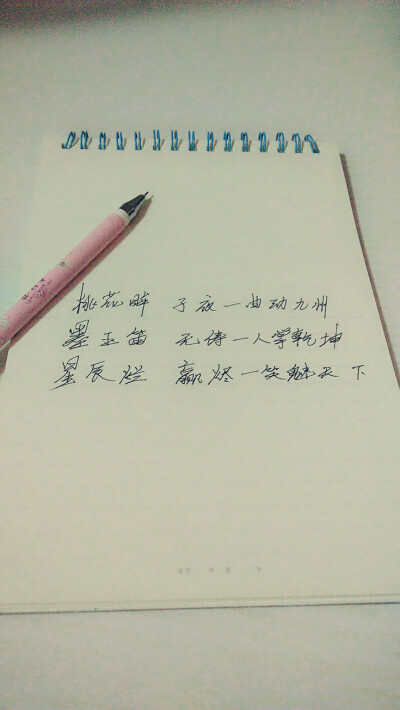 桃花畔 子夜一曲动九州
墨玉笛 无俦一人学乾坤
星辰烂 赢烬一笑魅天下